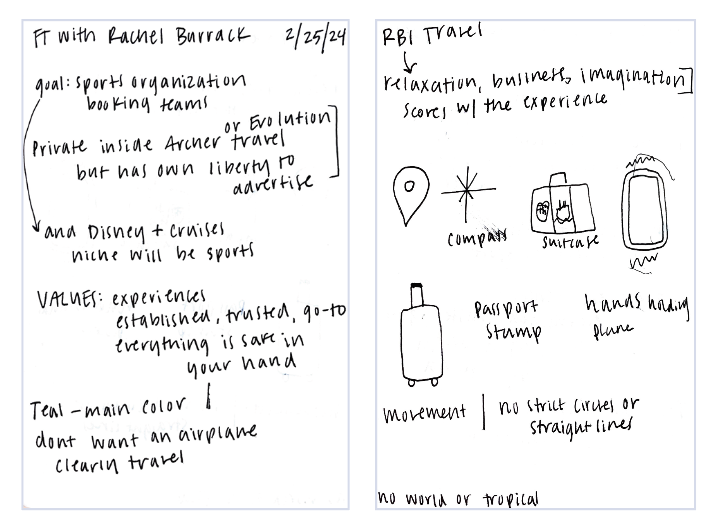 FT with Rachel Burrack 2/25/24
goal: sports organization
booking teams
or Evolution
Private inside Archer travel
but has own liberty to
advertise
and Disney + cruises
niche will be sports
VALUES: experiences
established, trusted, go-to
everything is safe in
your hand
Teal - main color
dont want an airplane
clearly travel
RBI Travel
relaxation, business, imagination
scores w/ the experience
compass
suitcase
passport
stamp
hands holding
plane
movement | no strict circles or
straight lines
no world or tropical